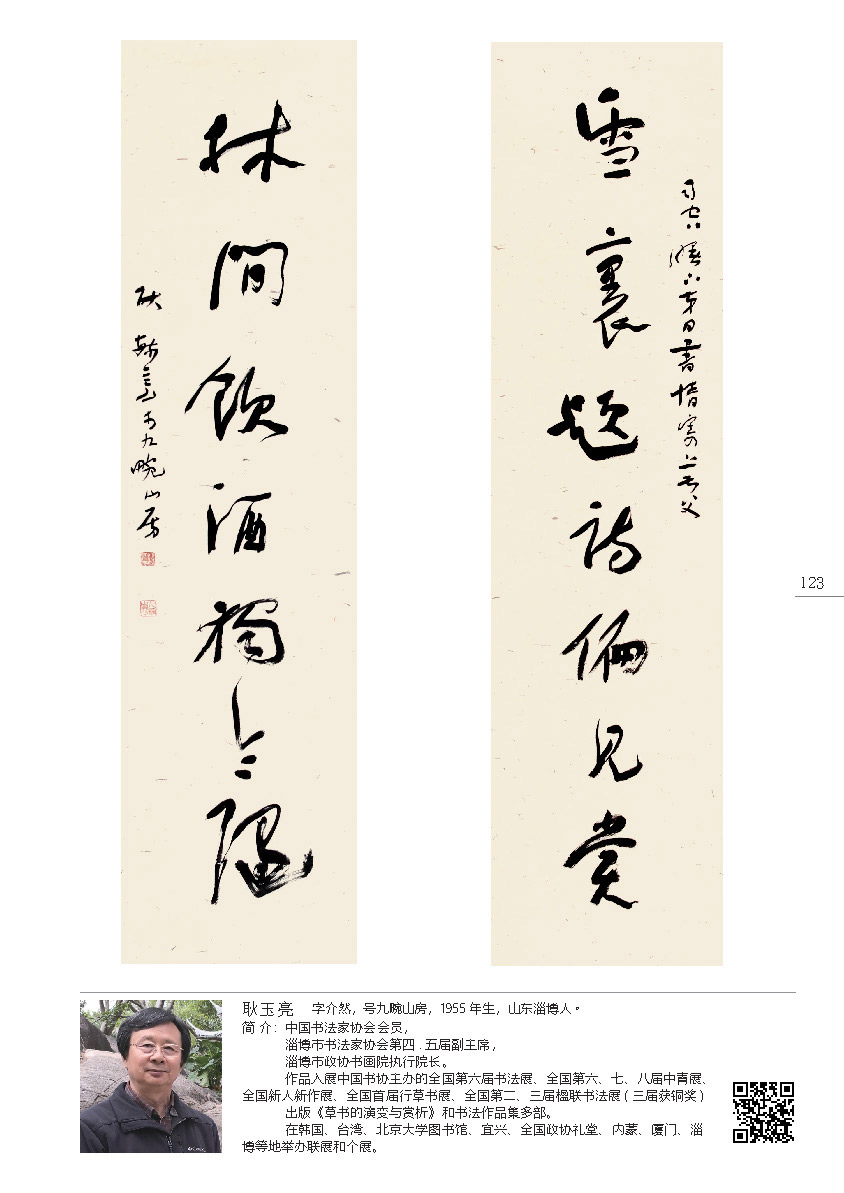 雪裏題詩偏見賞
林間飲酒獨令隨
123
耿玉亮 字介然，号九畹山房，1955 年生，山东淄博人。
简 介：中国书法家协会会员，
淄博市书法家协会第四 . 五届副主席，
淄博市政协书画院执行院长。
作品入展中国书协主办的全国第六届书法展、全国第六、七、八届中青展、
全国新人新作展、全国首届行草书展、全国第二、三届楹联书法展（三届获铜奖）
出版《草书的演变与赏析》和书法作品集多部。
在韩国、台湾、北京大学图书馆、宜兴、全国政协礼堂、内蒙、厦门、淄
博等地举办联展和个展。